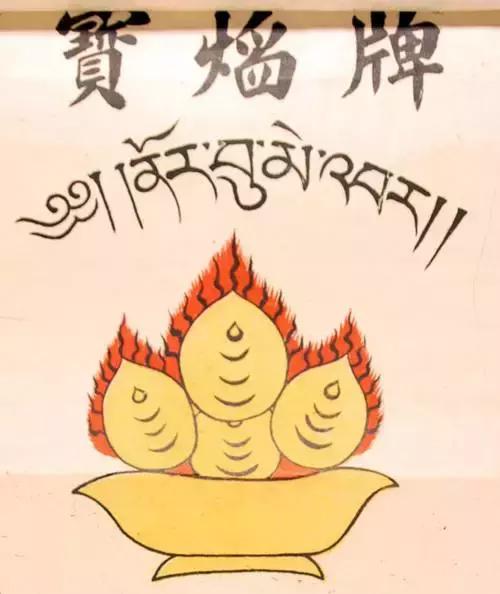 寶熖牌
༄། །ནོར་བུ་མེ་འབར།།